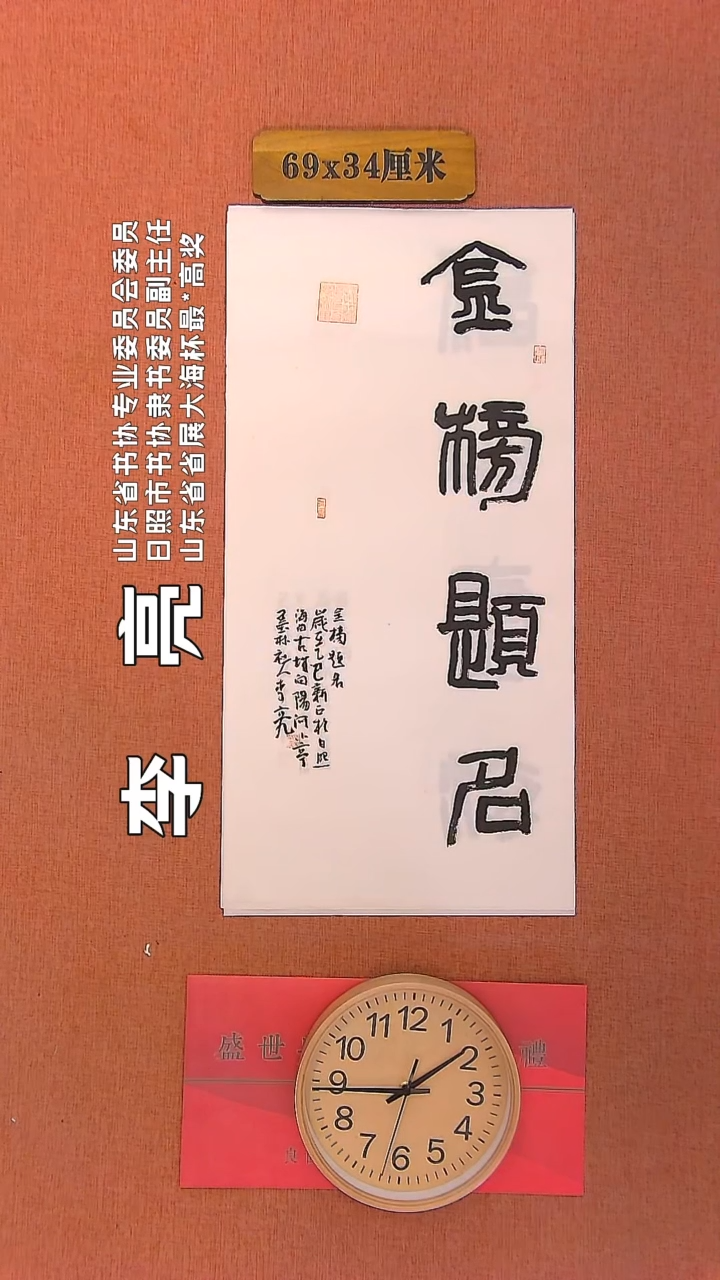 69x34厘米
金榜題名
金榜题名
歲在乙巳新正於日照
海曲古城向陽河小亭
林社人李亮
李亮
山东省书协专业委员会委员
日照市书协隶书委员副主任
山东省省展大海杯最*高奖
盛世
禮
12
1
2
3
4
5
6
7
8
9
10
11